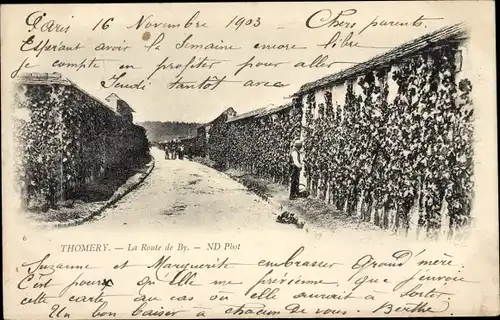 Paris 16 Novembre 1903 Chers parents.
Espérant avoir la Semaine encore libre
je compte en profiter pour aller
Jeudi tantôt avec
6
THOMERY. — La Route de By. — ND Phot
Suzanne et Marguerite embrasser Grand'mère.
C'est pour qu'elle me prévienne, que j'envoie
cette carte au cas ou elle aurait à sortir
Un bon baiser à chacun de vous. Berthe